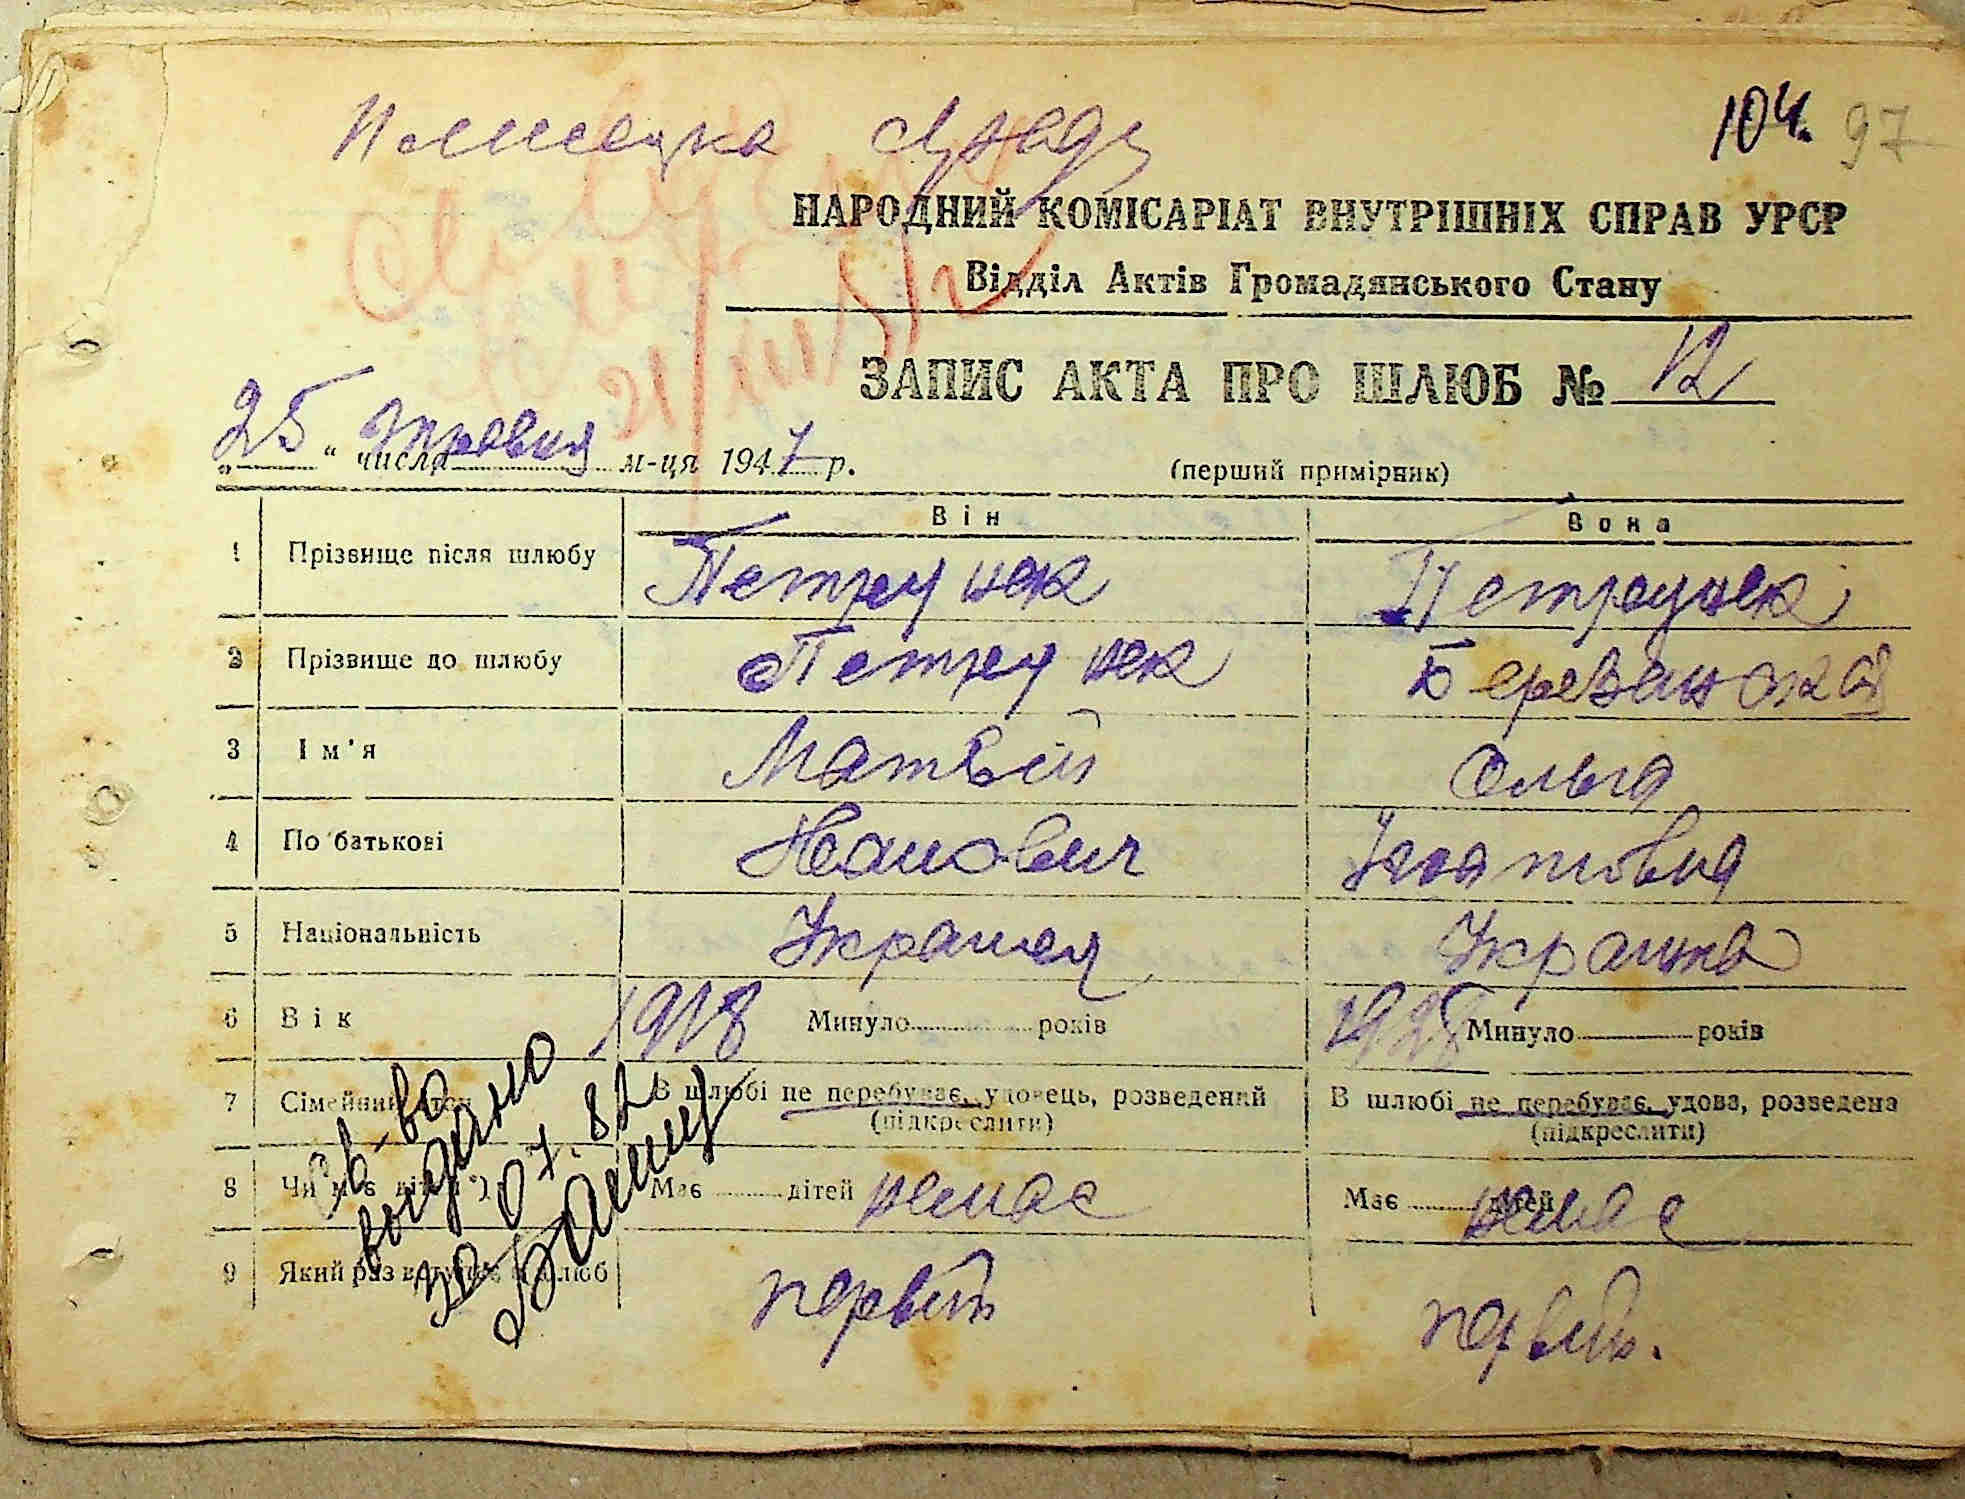 104. 97
НАРОДНИЙ КОМІСАРІАТ ВНУТРІШНІХ СПРАВ УРСР
Відділ Актів Громадянського Стану
ЗАПИС АКТА ПРО ШЛЮБ № 12
„25“ числа травня м-ця 1947 р. (перший примірник)
Він Вона
1 Прізвище після шлюбу Петрунек Петрунек
2 Прізвище до шлюбу Петрунек
3 Ім'я Матвій Ольга
4 По батькові Іванович Ігнатовна
5 Національність Українец Українка
6 Вік 1918 Минуло років 1928 Минуло років
7 Сімейний стан В шлюбі не перебуває, удовець, розведений (підкреслити) В шлюбі не перебуває, удова, розведена (підкреслити)
8 Чи має дітей*) Має дітей немає Має дітей немає
9 Який раз вступає в шлюб первий первий.
св-во
выдано
07.82